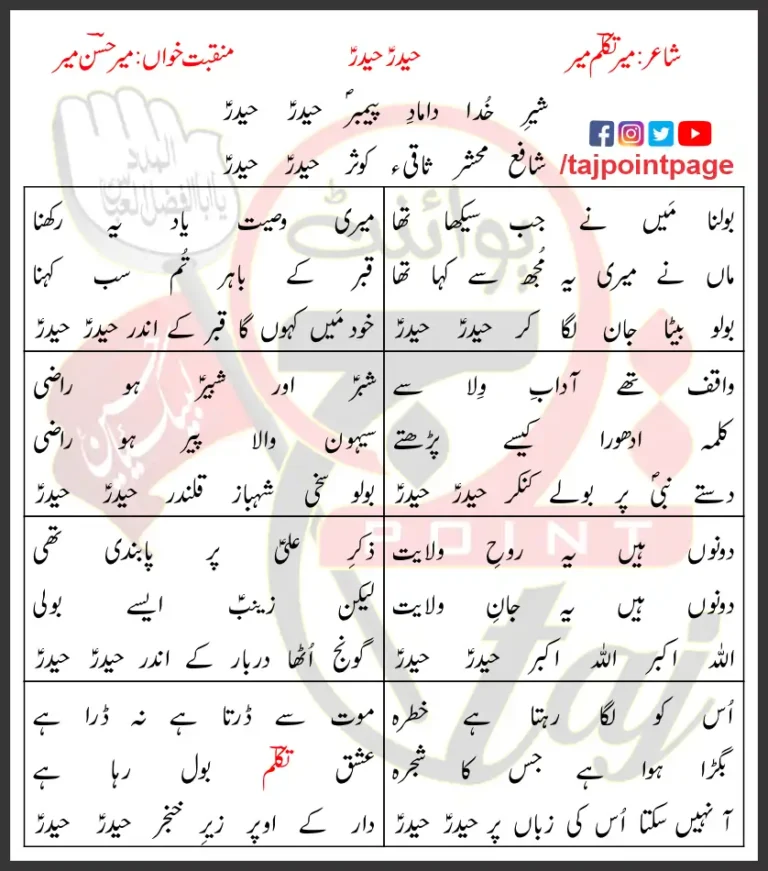 شاعر: میر تکلّم میر
حیدرؑ حیدرؑ
منقبت خواں: میر حسن میر
شیرِ خُدا دامادِ پیمبرؐ حیدرؑ حیدرؑ
شافع محشر ثاقیء کوثر حیدرؑ حیدرؑ
/tajpointpage
بولنا مَیں نے جب سیکھا تھا
ماں نے میری یہ مُجھ سے کہا تھا
بولو بیٹا جان لگا کر حیدرؑ حیدرؑ
میری وصیت یاد یہ رکھنا
قبر کے باہر تُم سب کہنا
خود مَیں کہوں گا قبر کے اندر حیدرؑ حیدرؑ
واقف تھے آدابِ وِلا سے
کلمہ ادھورا کیسے پڑھتے
دستے نبیؐ پر بولے کنکر حیدرؑ حیدرؑ
شبرؑ اور شبیرؑ ہو راضی
سیہون والا پیر ہو راضی
بولو سخی شہباز قلندر حیدرؑ حیدرؑ
دونوں ہیں یہ روحِ ولایت
دونوں ہیں یہ جانِ ولایت
اللہ اکبر اللہ اکبر حیدرؑ حیدرؑ
ذکرِ علیؑ پر پابندی تھی
لیکن زینبؑ ایسے بولی
گونج اُٹھا دربار کے اندر حیدرؑ حیدرؑ
اُس کو لگا رہتا ہے خطرہ
بگڑا ہوا ہے جس کا شجرہ
آ نہیں سکتا اُس کی زباں پر حیدرؑ حیدرؑ
موت سے ڈرتا ہے نہ ڈرا ہے
عشق تکلّم بول رہا ہے
دار کے اوپر زیرِ خنجر حیدرؑ حیدرؑ
پوائنٹ
POINT
taj